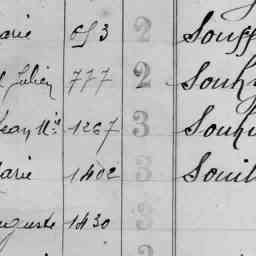 arie 053 2 Souff
Julien 777 2 Souh
Jean M.ie 1267 3 Souh
arie 1402 3 Soui
uguste 1430 3